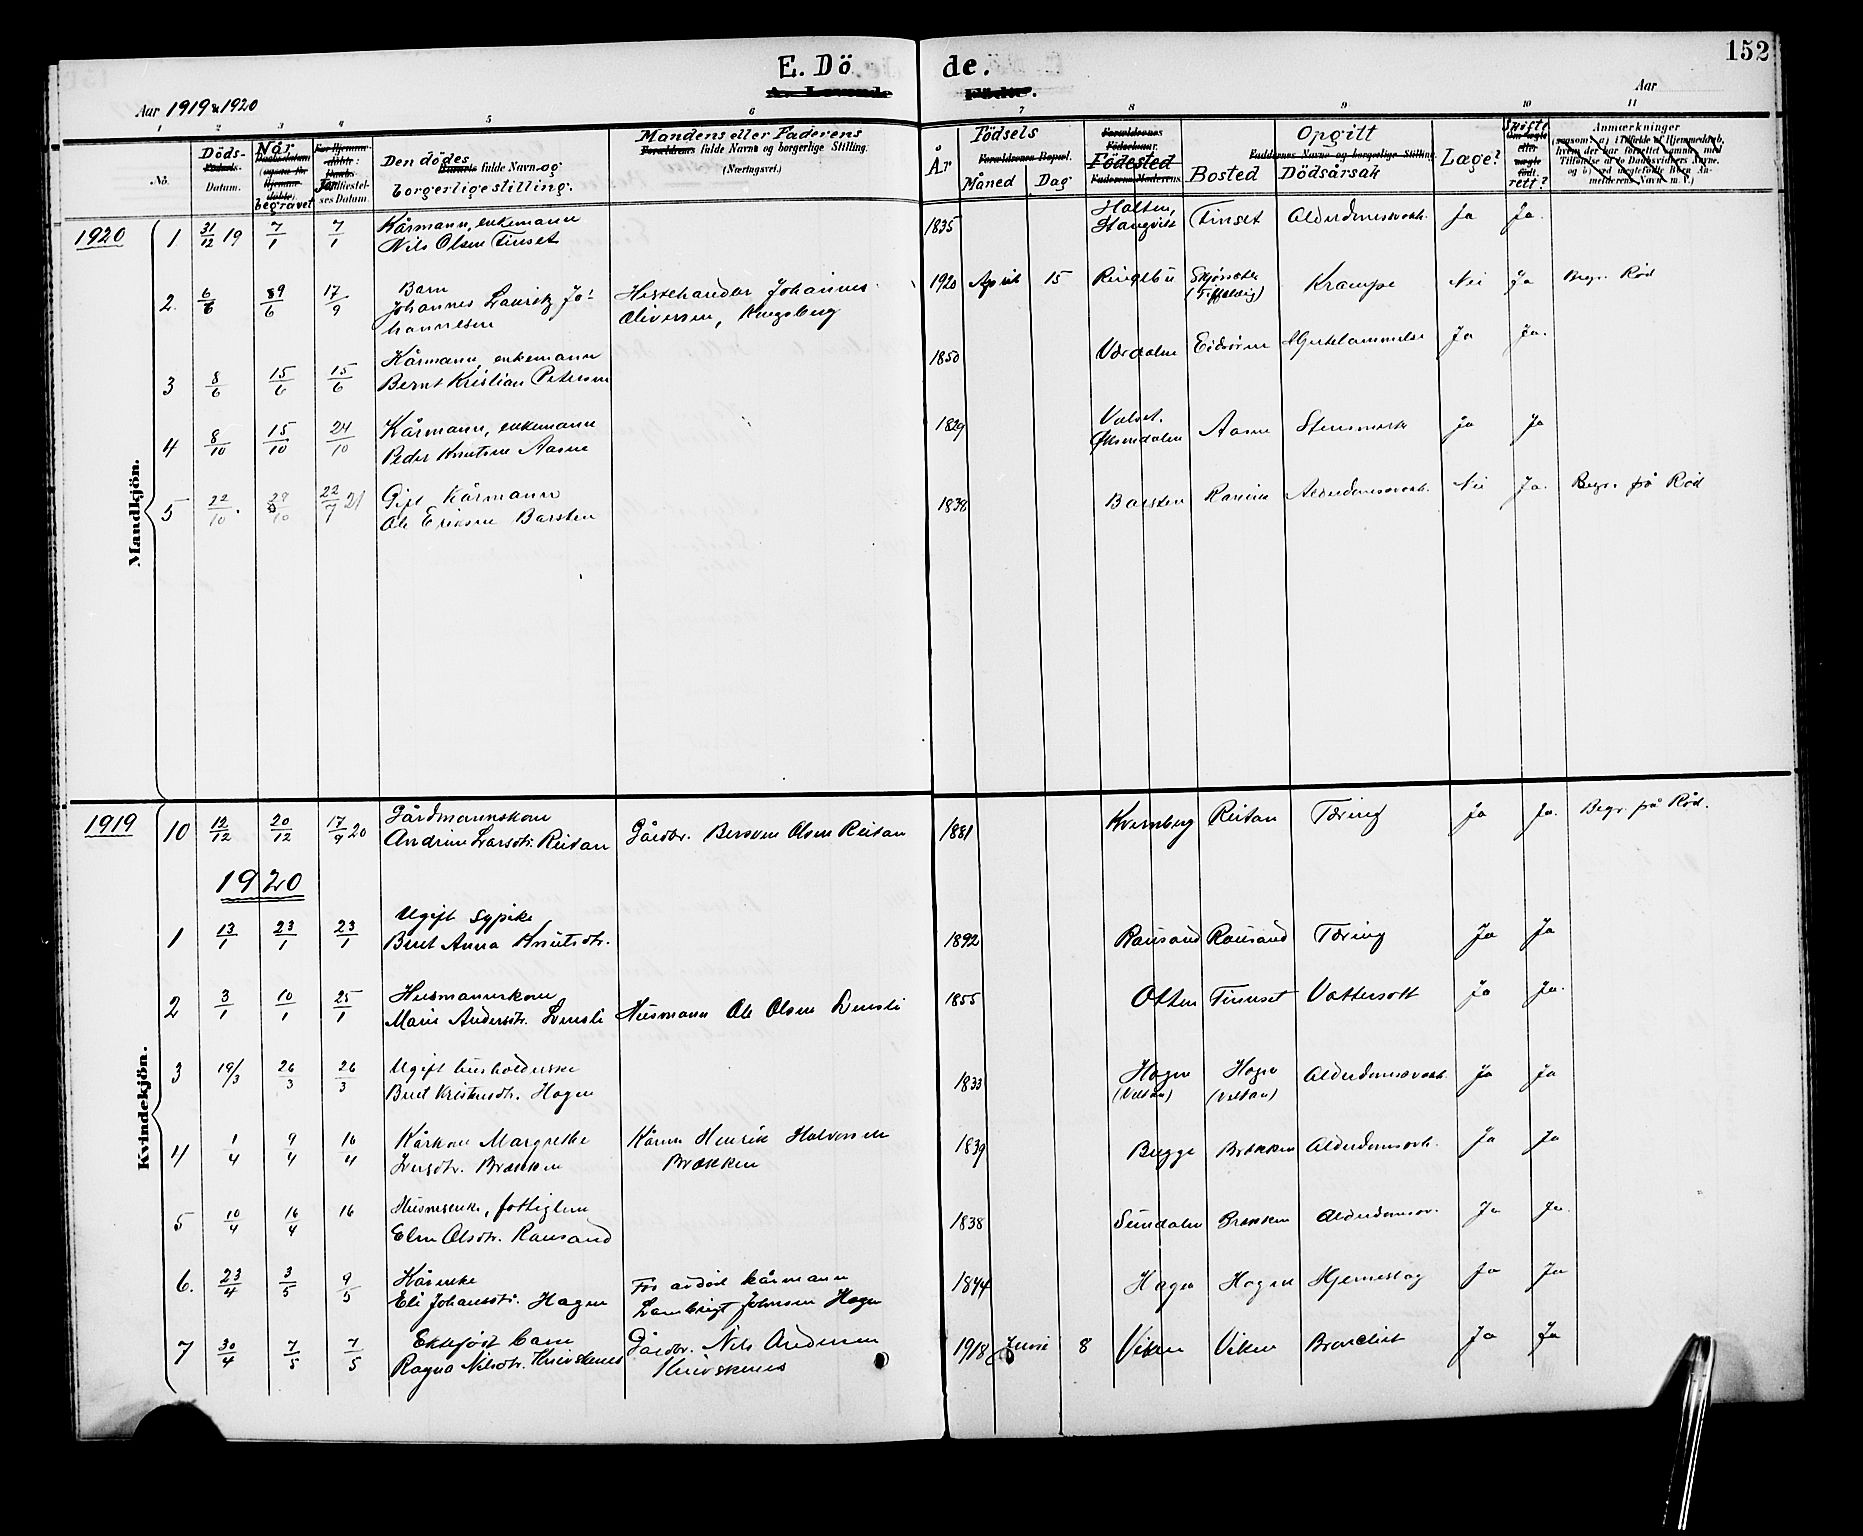 E. Dö de.
152
Aar 1919 & 1920
Aar
1 2 3 4 5 6 7 8 9 10 11
No. Döds- Datum. Når begravet Den dödes fulde Navn og borgerlige stilling. Mandens eller Faderens fulde Navne og borgerlige Stilling. (Næringsvei.) Födsels År Måned Dag Födested Bosted Opgitt Dödsårsak Læge? Skifterett? Anmærkninger
Mandkjön.
1920 1 31/12 19 7/1 7/1 Kårmann, enkemann
Nils Olsen Tinset 1835 Halten, Stangvik Tinset Alderdomssvakh. Ja Ja.
2. 6/6 9/6 17/9 Barn
Johannes Lauritz Jo-
hannesen Hestehandler Johannes
Oliversen, Kongsberg 1920 April 15 Ringebu Krampe Nei Ja Begr. Rød
3 8/6 15/6 15/6 Kårmann, enkemann
Bernt Kristian Petersen 1850 Værdalen Eidsøren Hjertelammelse Ja Ja.
4 8/10 15/10 24/10 Kårmann, enkemann
Peder Knutsen Aasen 1829 Øksendalen Aasen Ja Ja
5 22/10. 29/10 22/7 21 Gift Kårmann
Ole Eriksen Barsten 1838 Barsten Alderdomssvakh. Nei Ja. Begr. på Rød
Kvindekjön.
1919 10 12/12 20/12 17/9 20 Gårdmannskone
Andrine Larsdtr. Reitan Gårdbr. Bersven Olsen Reitan 1881 Kvernberg Reitan Tæring Ja Ja. Begr. på Rød.
1920
1 13/1 23/1 23/1 Ugift Sypike
Beret Anna Knutsdtr. 1892 Rausand Rausand Tæring Ja Ja
2 3/1 10/1 25/1 Husmannskone
Marie Andersdtr. Husmann Ole Olsen 1855 Otten Tinnset Vattersott Ja Ja.
3 19/3 26/3 26/3 Ugift husholderske
Beret Kristensdtr. Hagen 1833 Hagen Hagen Alderdomssvakh. Ja Ja
4 1/4 9/4 16/4 Kårkone Margrethe
Iversdtr. Brækken Kårm. Henrik Halvorsen
Brækken 1839 Bugge Brækken Alderdomssvh. Ja Ja
5 10/4 16/4 16 Husmenke, fattiglem
Elen Olsdtr. Rausand 1838 Sundalen Brækken Alderdomssv. Ja Ja.
6. 23/4 3/5 9/5 Kårenke
Eli Johansdtr. Hagen For avdøde kårmann
Lambrigt Johnsen Hagen 1844 Hagen Hagen Hjerneslag Ja Ja
7 30/4 7/5 7/5 Ektefødt barn
Ragna Nilsdtr. Knivskenes Gårdbr. Nils Andersen
Knivskenes 1918 Juni 8 Viken Viken Bronchit Ja Ja